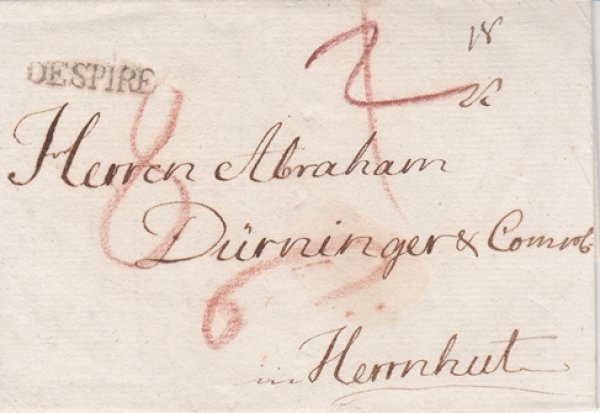 DE SPIRE
18
2
8
Herren Abraham
Dürninger &
6
in Herrnhut